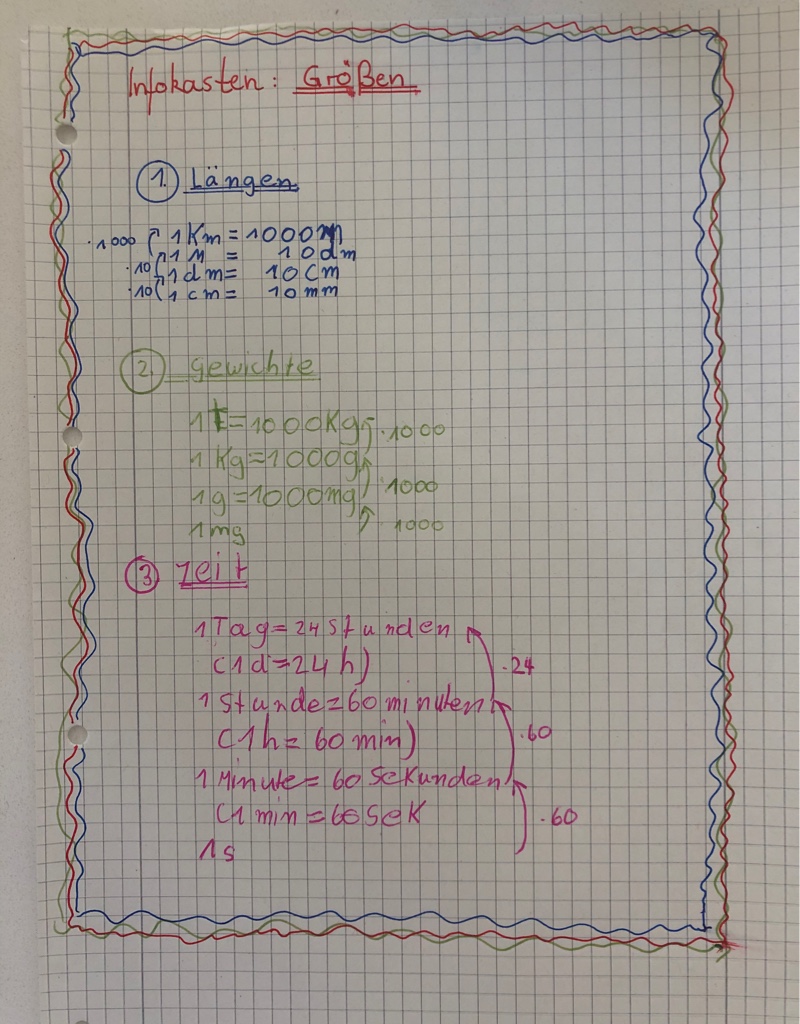 Infokasten: Größen
1. Längen
·1000 1 Km = 1000m
1 M = 10dm
·10 1 dm = 10Cm
·10 1 cm = 10 mm
2. Gewichte
1t=1000Kg ·1000
1 Kg=1000g
1g=1000mg 1000
1mg 1000
3 Zeit
1 Tag=24 Stunden
(1d=24h) ·24
1 Stunde=60 minuten
(1h= 60 min) ·60
1 Minute= 60 Sekunden
(1 min =60 Sek ·60
1s